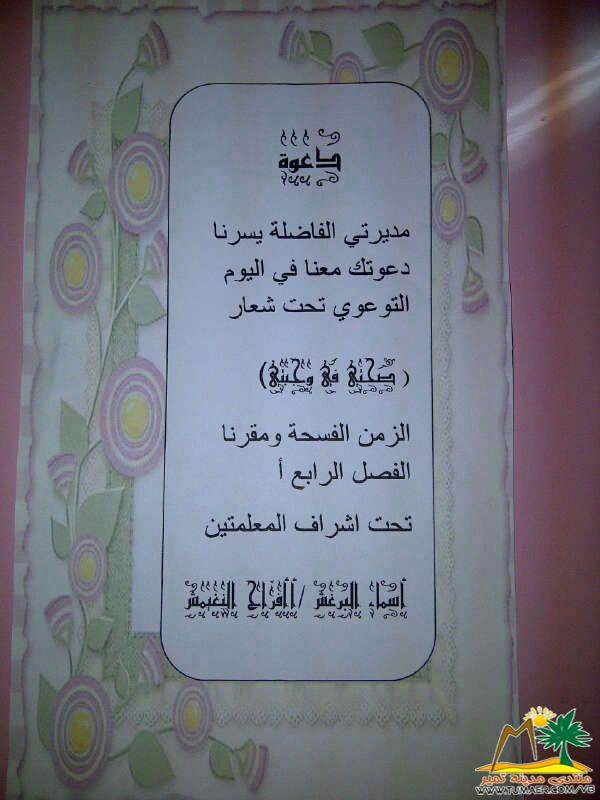 دعوة
مديرتي الفاضلة يسرنا
دعوتك معنا في اليوم
التوعوي تحت شعار
( صحتي في وجبتي)
الزمن الفسحة ومقرنا
الفصل الرابع أ
تحت اشراف المعلمتين
أسماء البرغش /أأفراح النغيمش
منتدى مدينة تمير
WWW.TUMAER.COM/VB